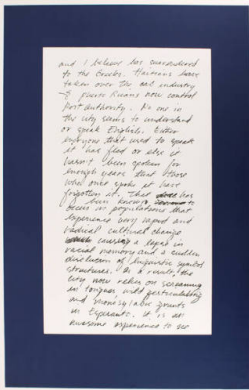 and I believe has surrendered
to the Greeks. Haitians have
taken over the cab industry
Puerto Ricans now control
Port Authority. No one in
the city seems to understand
or speak English. Either
everyone that used to speak
it has fled or else it
hasn't been spoken for
enough years that those
who once spoke it have
forgotten it. That has
been known to
occur in populations that
experience very rapid and
radical cultural change
causing a lapse in
racial memory and a sudden
dissolution of linguistic symbol
structures. As a result the
city now relies on screaming
in tongues wild gesticulating
and monosyllabic grunts
in Esperanto. It is an
awesome experience to